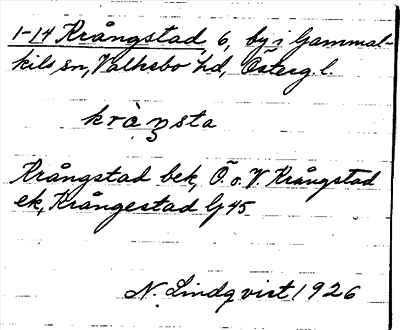 1-14 Krångstad, 6, by i Gammal-
kils sn, Valkebo hd, Österg. l.
kràŋsta
Krångstad bek, Ö. o. V. Krångstad
ek, Krångestad Gj 45
N. Lindqvist 1926